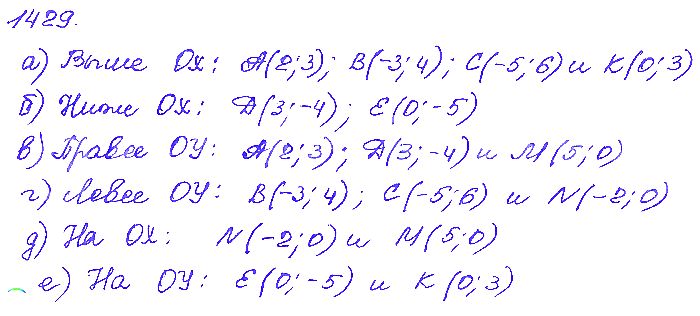 1429.
а) Выше Ох: А(2;3); В(-3;4); С(-5;6) и К(0;3)
б) Ниже Ох: Д(3;-4); Е(0;-5)
в) Правее ОУ: А(2;3); Д(3;-4) и М(5;0)
г) Левее ОУ: В(-3;4); С(-5;6) и N(-2;0)
д) На Ох: N(-2;0) и М(5;0)
е) На ОУ: Е(0;-5) и К(0;3)